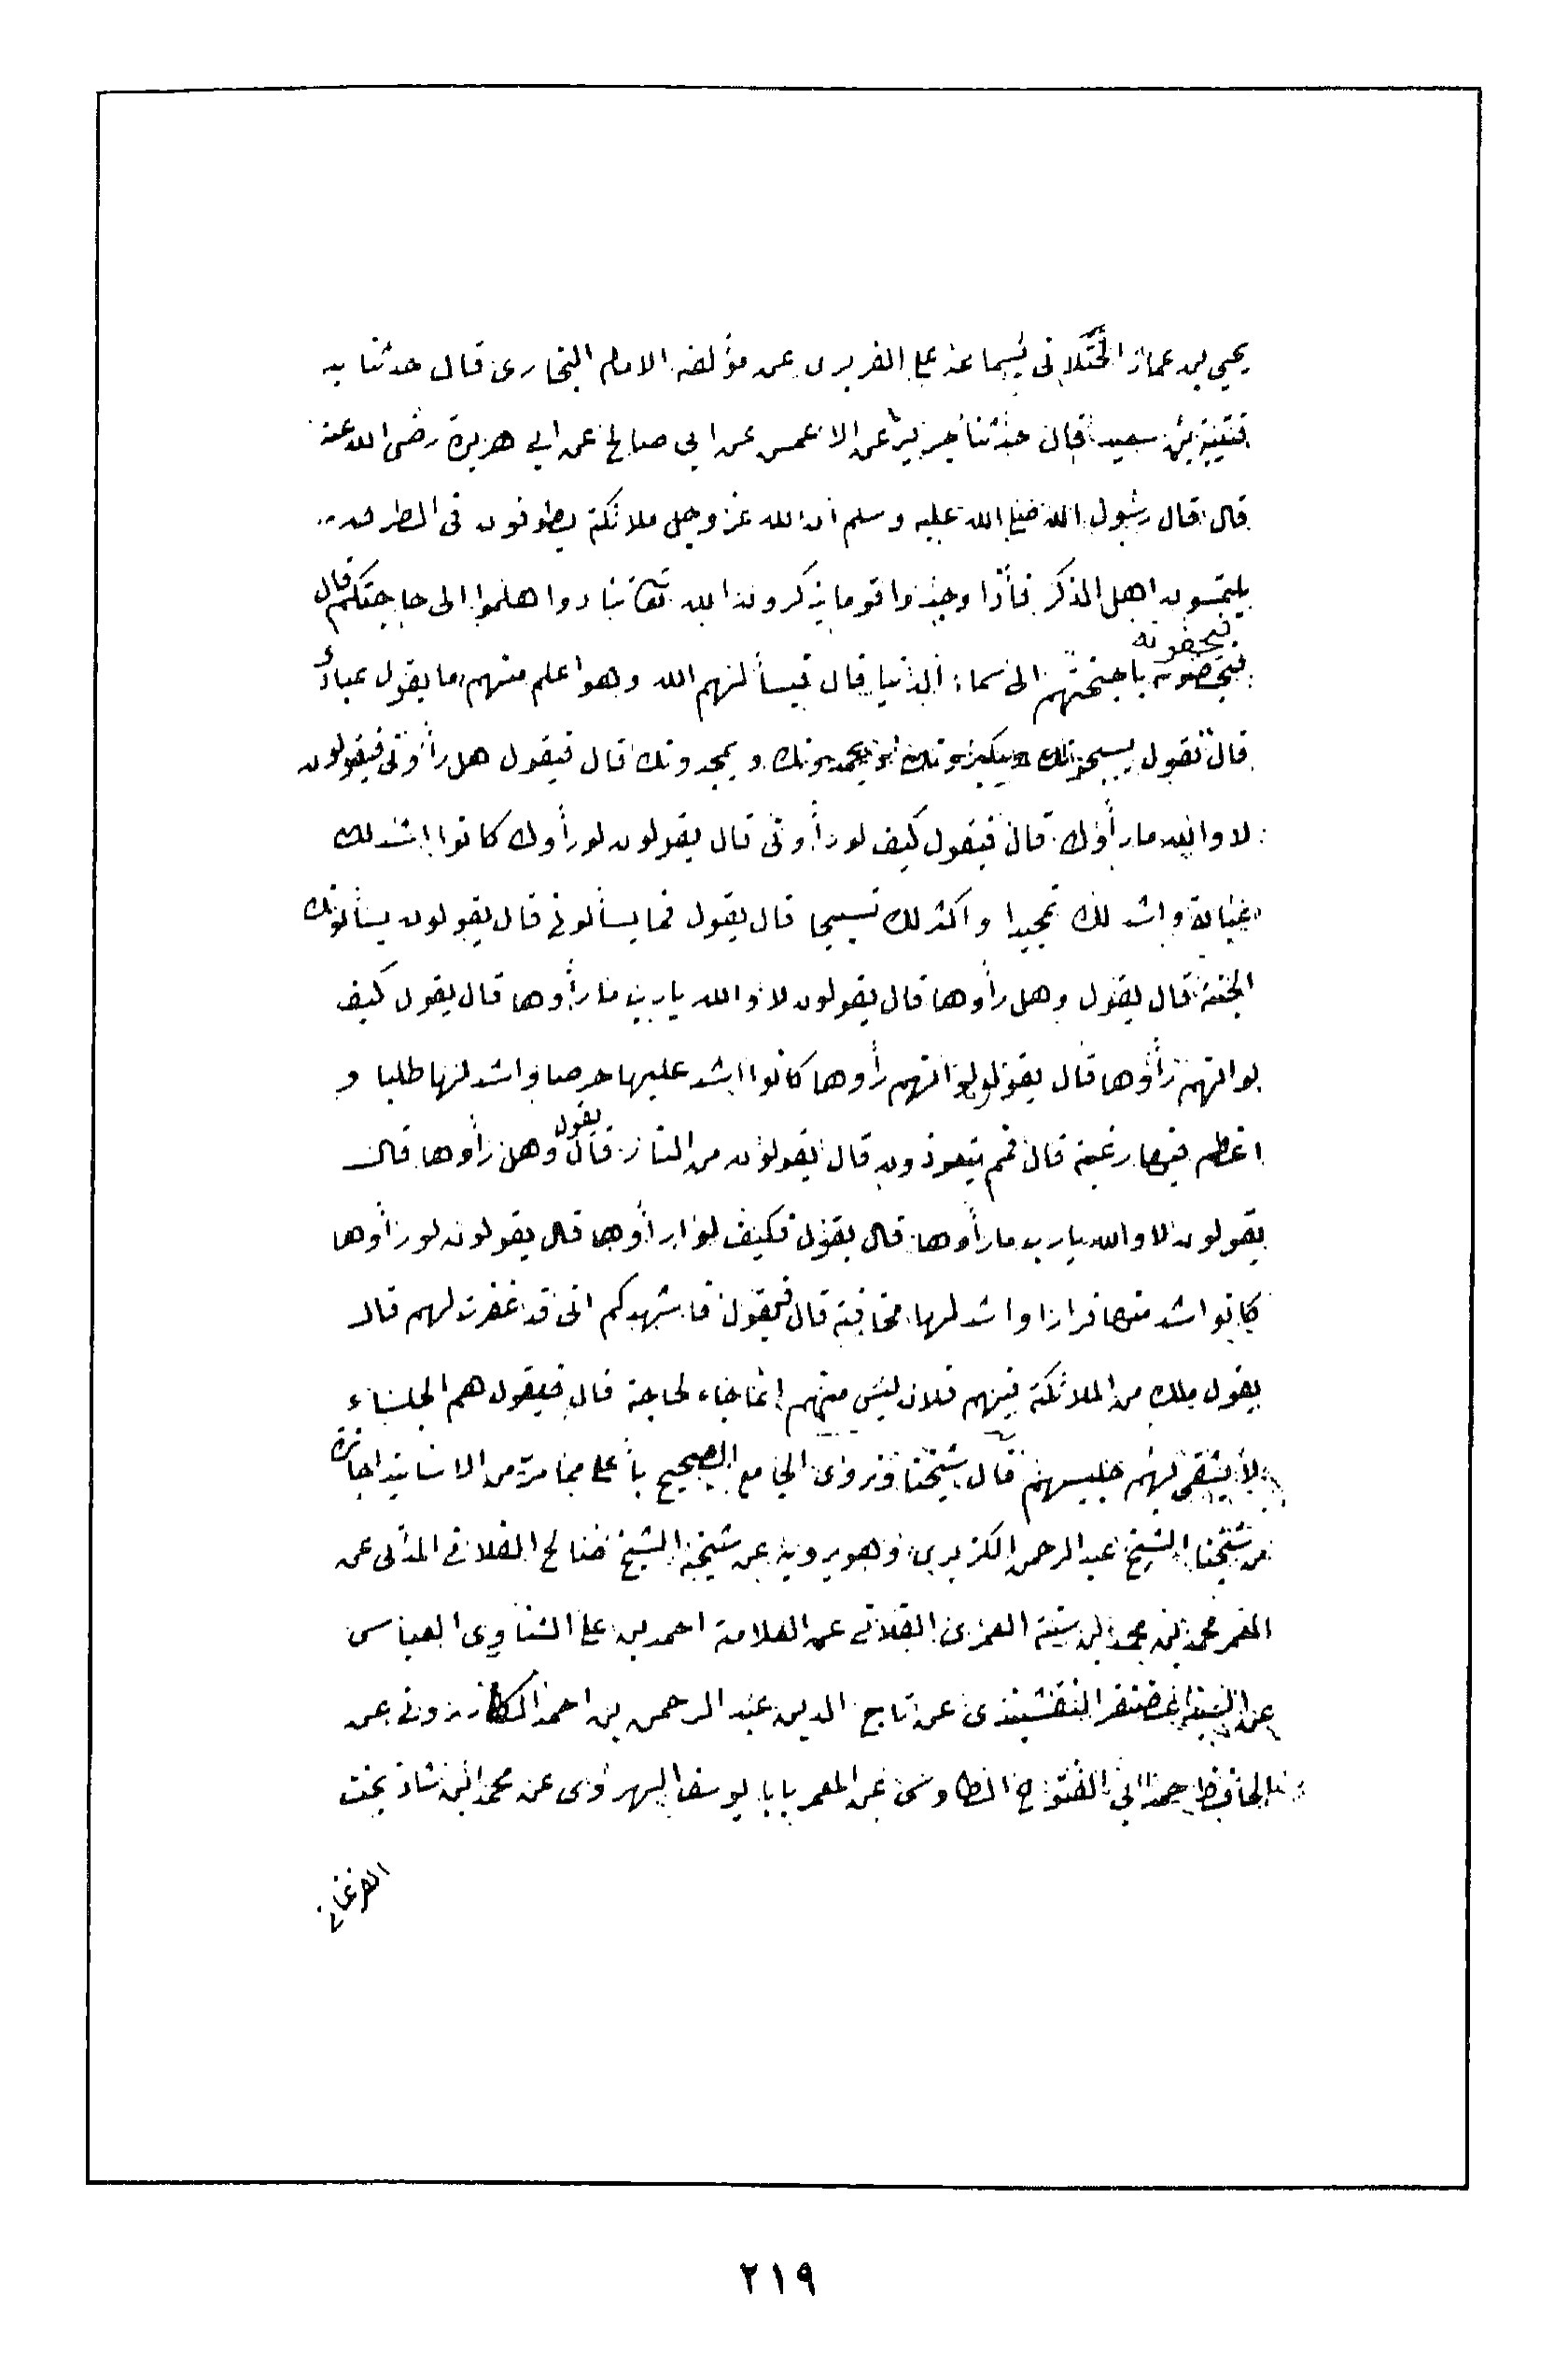 يحيى بن عمار الختلاني بسماعه على الفربري عن مؤلفه الامام البخاري قال حدثنا به
قتيبة بن سعيد قال حدثنا جرير عن الاعمش عن ابي صالح عن ابي هريرة رضى الله عنه
قال قال رسول الله صلى الله عليه وسلم ان لله عز وجل ملائكة يطوفون في الطرق
يلتمسون اهل الذكر فأذا وجدوا قوما يذكرون الله تعالى تنادوا هلموا الى حاجتكم قال
فيحفونه
فيحضونه باجنحتهم الى سماء الدنيا قال فيسألهم الله وهو اعلم منهم ما يقول عبادي
قال تقول يسبحونك ويكبرونك ويحمدونك ويمجدونك قال فيقول هل رأوني فيقولون
لا والله ما رأوك قال فيقول كيف لو رأوني قال يقولون لو رأوك كانوا اشد لك
عبادة واشد لك تمجيدا واكثر لك تسبيحا قال يقول فما يسألوني قال يقولون يسألونك
الجنة قال يقول وهل رأوها قال يقولون لا والله يا رب ما رأوها قال يقول كيف
لو انهم رأوها قال يقولون لو انهم رأوها كانوا اشد عليها حرصا واشد لها طلبا و
اعظم فيها رغبة قال فمم يتعوذون قال يقولون من النار قال يقول وهل رأوها قال
يقولون لا والله يا رب ما رأوها قال يقول فكيف لو رأوها قال يقولون لو رأوها
كانوا اشد منها فرارا واشد لها مخافة قال فيقول فاشهدكم اني قد غفرت لهم قال
يقول ملك من الملائكة فيهم فلان ليس منهم انما جاء لحاجة قال فيقول هم الجلساء
لا يشقى بهم جليسهم قال شيخنا ونروي الجامع الصحيح بأعلى مما مر من الاسانيد اجازة
من شيخنا الشيخ عبد الرحمن الكزبري وهو يرويه عن شيخه الشيخ صالح الفلاني المدني عن
المعمر محمد بن محمد بن سنة العمري الفلاني عن العلامة احمد بن علي الشناوي العباسي
عن السيد غضنفر النقشبندي عن تاج الدين عبد الرحمن بن احمد الكازروني عن
الحافظ احمد ابي الفتوح الطاوسي عن المعمر بابا يوسف الهروي عن محمد ابن شاذ بخت
الفرغاني
٢١٩